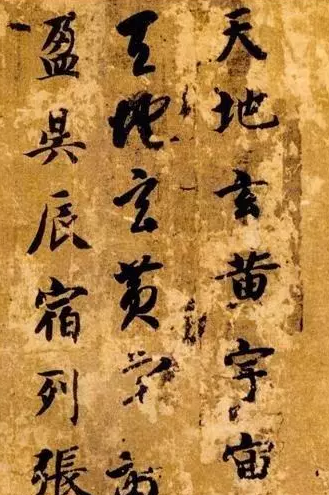 天地玄黄宇宙
天地玄黄宇宙
盈昃辰宿列張